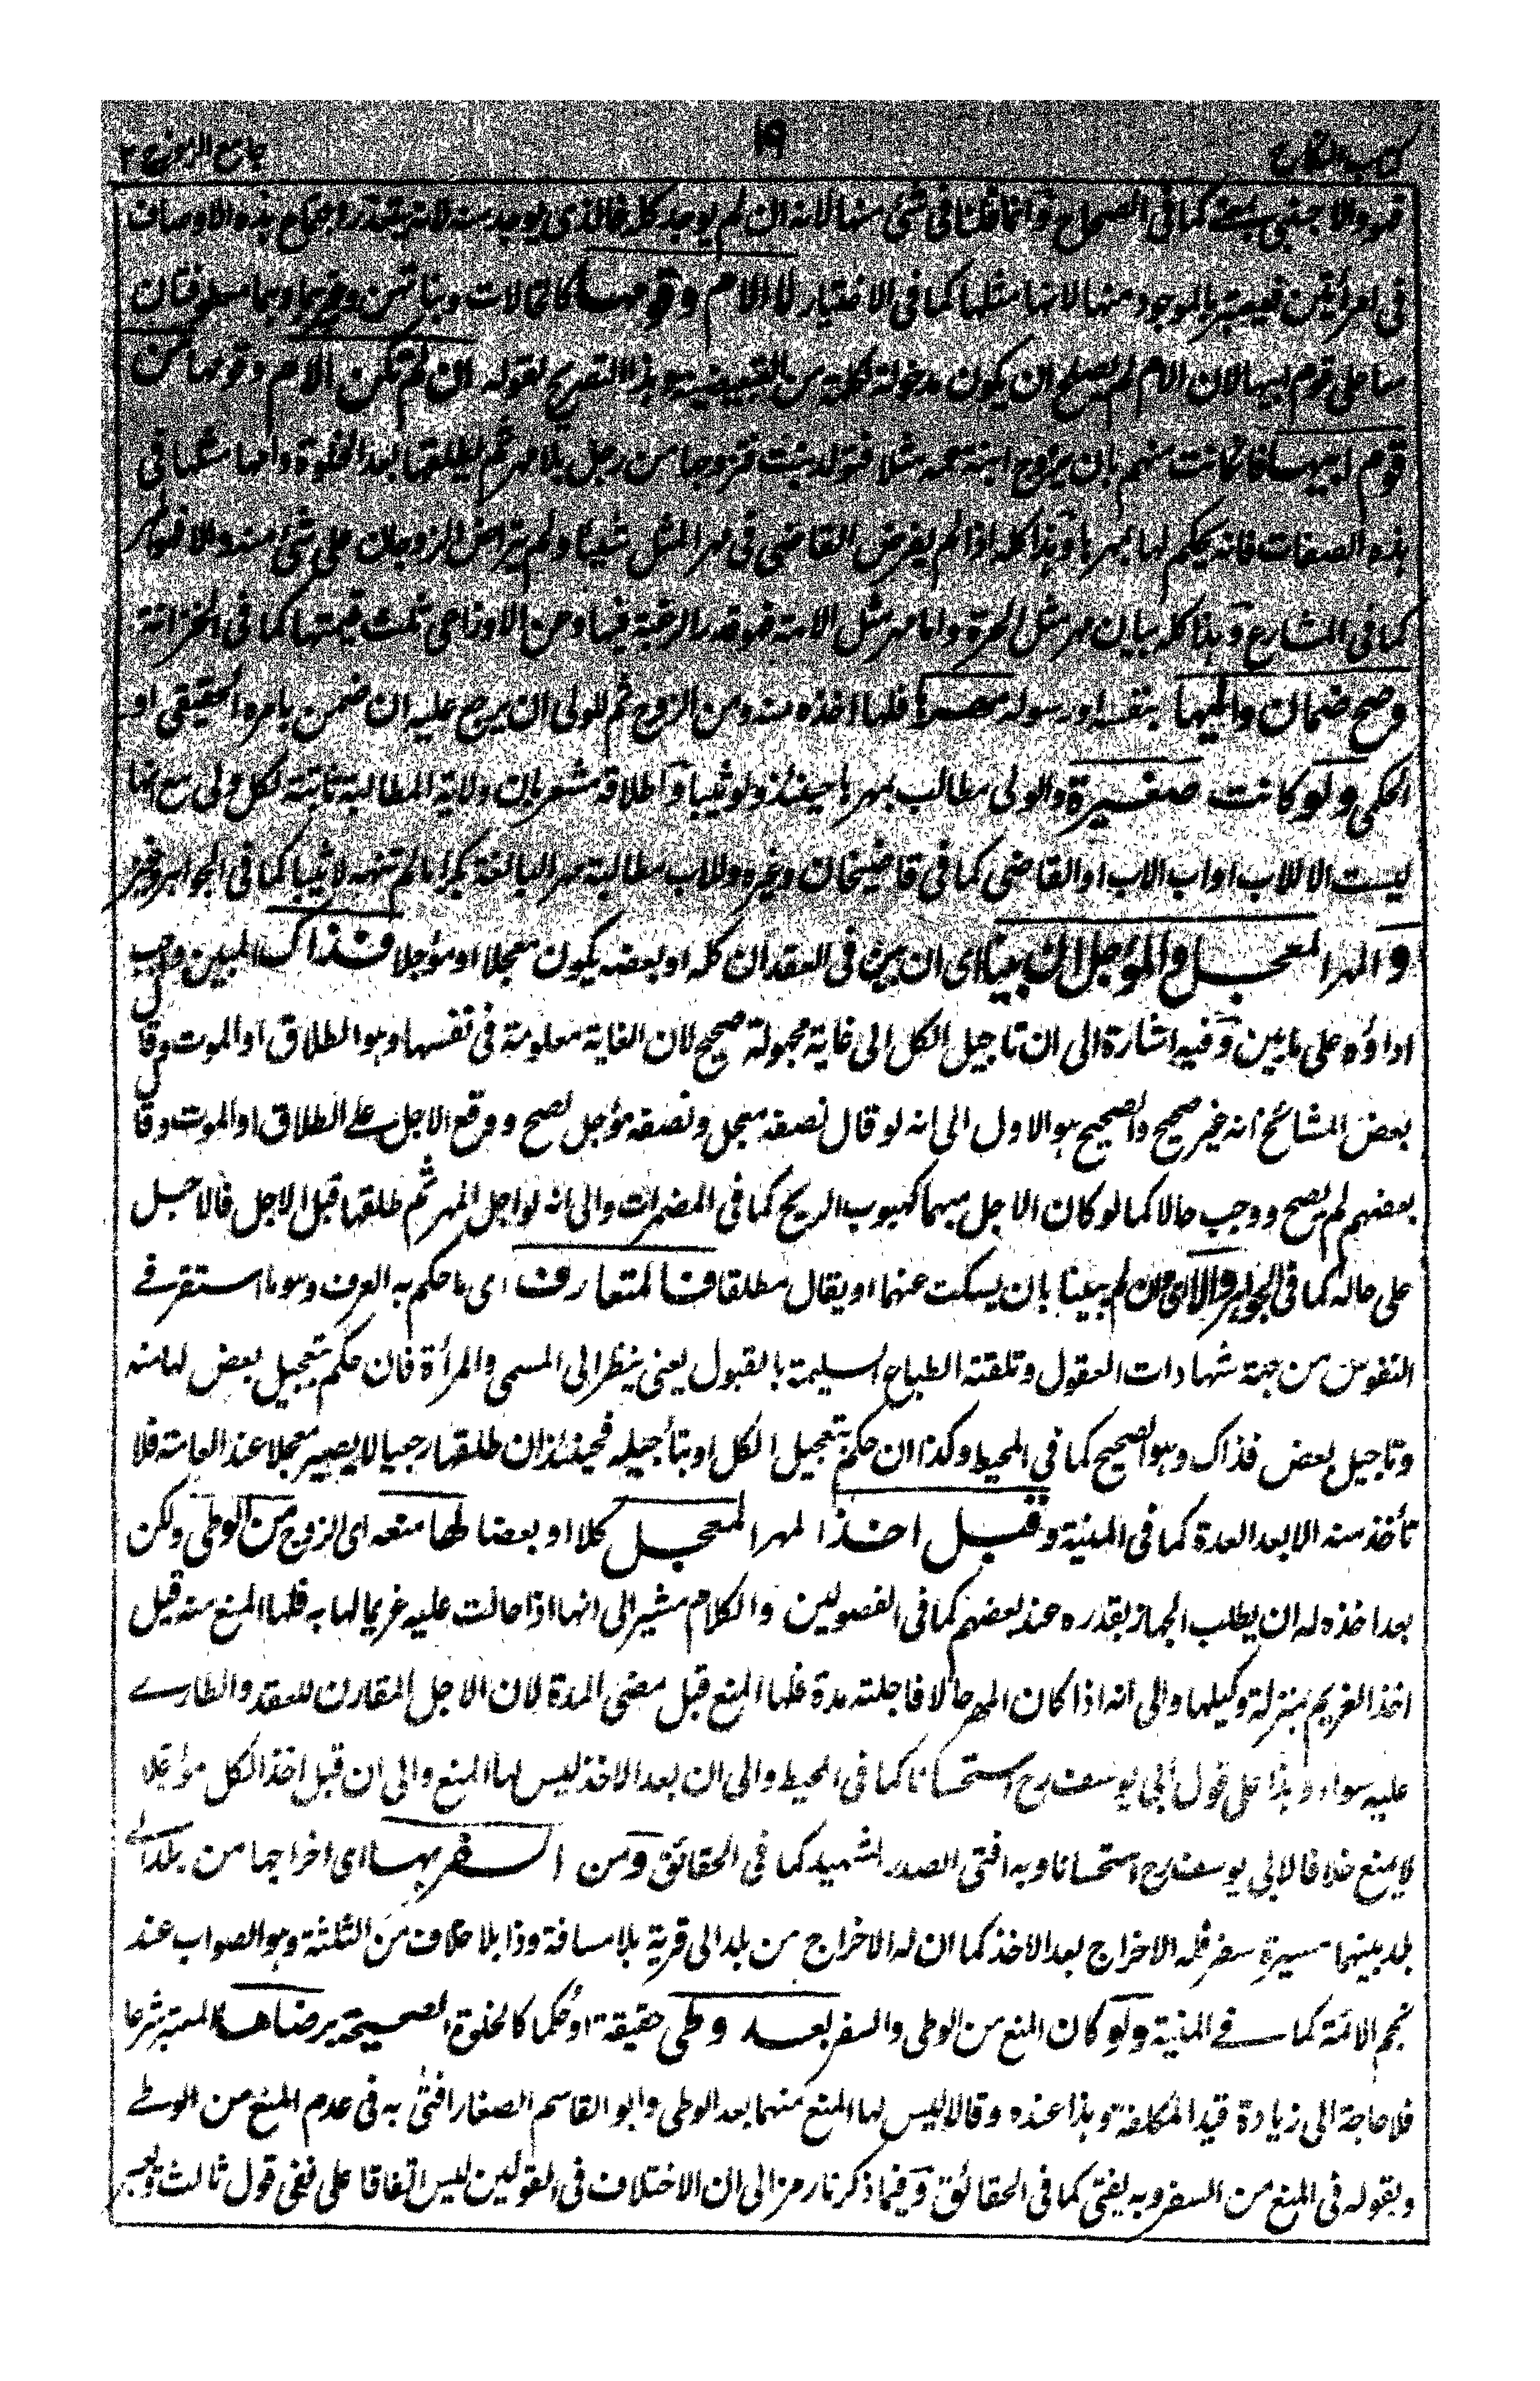 كتاب النكاح ١٩ جامع الرموز ج ٢
والاجنبي كما فى الصحاح وانما قلنا فى شئ منها لانه ان لم يوجد كله فالذى يوجد منه لانه يتعذر اجتماع هذه الاوصاف
فى امرأتين فيعتبر بالموجود منها لانها مثلها كما فى الاختيار لا الام وقومها كالخالات وبناتهن وغيرهما وهما معطوفتان
على قوم ابيها لان الام لم يصلح ان يكون مدخولة لكلمة من التبعيضية وهذا التصريح لقوله ان لم تكن الام وقومها من
قوم ابيها فان كانت منهم بان يزوج ابنة عمه مثلا فتولد بنت فتزوجها من رجل بلا مهر ثم يطلقها بعد الخلوة وامها مثلها فى
هذه الصفات فانه يحكم لها بمهرها وهذا كله اذا لم يفرض القاضى فى مهر المثل شيئا ولم يتراض الزوجان على شئ منه والا فهو المهر
كما فى المشارع وهذا كله بيان مهر مثل الحرة واما مهر مثل الامة فهو قدر الرغبة فيها وعن الاوزاعى ثلث قيمتها كما فى الخزانة
وصح ضمان وليها بنفسه او رسوله مهرها فلها اخذه منه ومن الزوج ثم للولى ان يرجع عليه ان ضمن بامره الحقيقى او
الحكمى ولو كانت صغيرة والولى مطالب بمهرها حينئذ ولو ثيبا واطلاقه مشعر بان ولاية المطالبة ثابتة لكل ولى مع انها
ليست الا للاب او اب الاب او القاضى كما فى قاضيخان وغيره وللاب مطالبة مهر البالغة بكرا ما لم تنهه لا ثيبا كما فى الجواهر وغيره
والمهر المعجل والمؤجل ان بينا اى ان بين فى العقد ان كله او بعضه يكون معجلا او مؤجلا فذاك المبين واجب
اداؤه على ما بين وفيه اشارة الى ان تاجيل الكل الى غاية مجهولة صحيح لان الغاية معلومة فى نفسها وهو الطلاق او الموت وقال
بعض المشائخ انه غير صحيح والصحيح هو الاول الى انه لو قال نصفه معجل ونصفه مؤجل لصح ووقع الاجل على الطلاق او الموت وقال
بعضهم لم يصح ووجب حالا كما لو كان الاجل مبهما كهبوب الريح كما فى المضمرات والى انه لو اجل المهر ثم طلقها قبل الاجل فالاجل
على حاله كما فى الجواهر والا اى وان لم يبينا بان يسكت عنهما او يقال مطلقا فالمتعارف اى ما حكم به العرف وهو ما استقر فے
النفوس من جهة شهادات العقول وتلقته الطباع السليمة بالقبول يعنى ينظر الى المسمى والمرأة فان حكم بتعجيل بعض لها منه
وتاجيل بعض فذاك وهو الصحيح كما فى المحيط وكذا ان حكم بتعجيل الكل او بتأجيله فحينئذ ان طلقها رجعيا لا يصير معجلا عند العامة فلا
تأخذ منه الا بعد العدة كما فى المنية وقبل اخذ المهر المعجل كلا او بعضا لها منعه اى الزوج من الوطى ولكن
بعد اخذه له ان يطلب الجهاز بقدره عند بعضهم كما فى الفصولين والكلام مشير الى انها اذا حالت عليه غريما لها به فلها المنع منه قبل
اخذ الغريم بمنزلة وكيلها والى انه اذا كان المهر حالا فاجلته مدة فلها المنع قبل مضى المدة لان الاجل المقارن للعقد والطارے
عليه سواء وهذا على قول ابى يوسف رح استحسانا كما فى المحيط والى ان بعد الاخذ ليس لها المنع والى ان قبل اخذ الكل مؤجلا
لا يمنع خلافا لابى يوسف رح استحسانا وبه افتى الصدر الشهيد كما فى الحقائق ومن السفر بها اى اخراجها من بلد الى
بلد بينهما مسيرة سفر فله الاخراج بعد الاخذ كما ان له الاخراج من بلد الى قرية بلا مسافة وذا بلا خلاف من الثلثة وهو الصواب عند
نجم الائمة كما فے المنية ولو كان المنع من الوطى والسفر بعد وطى حقيقة او حكما كالخلوة الصحيحة برضاها المعتبر شرعا
فلا حاجة الى زيادة قيد المكلفة وهذا عنده وقالا ليس لها المنع منهما بعد الوطى وابو القاسم الصفار افتى به فى عدم المنع من الوطے
وبقوله فى المنع من السفر وبه يفتى كما فى الحقائق وفيما ذكرنا رمز الى ان الاختلاف فى القولين ليس اتفاقا على نفى قول ثالث